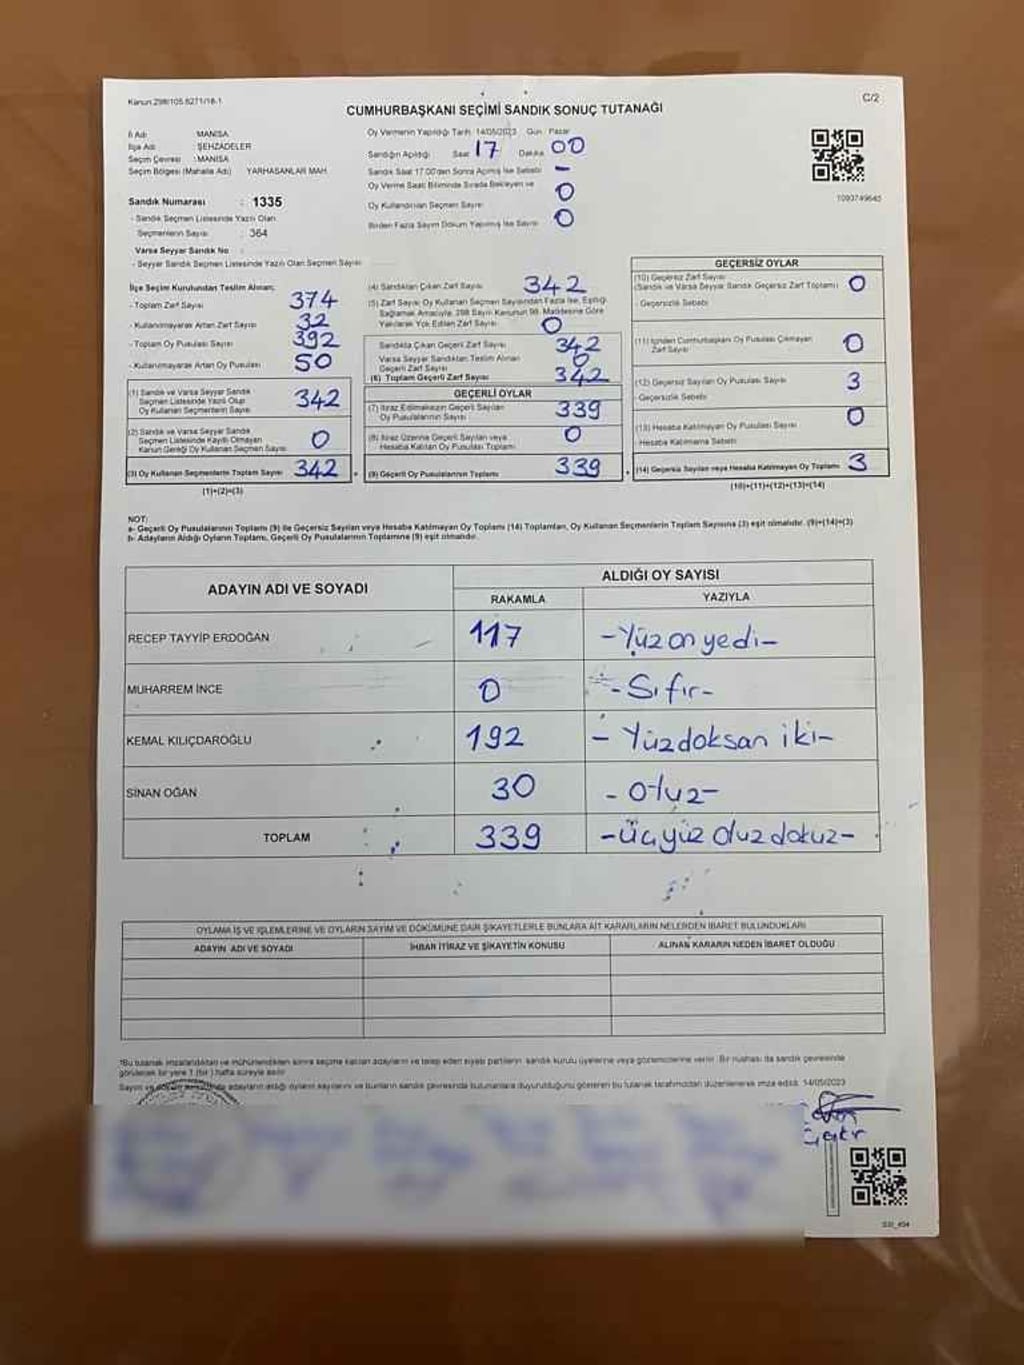 Kanun 298/105.6271/18-1
C/2
CUMHURBAŞKANI SEÇİMİ SANDIK SONUÇ TUTANAĞI
İl Adı MANİSA
İlçe Adı ŞEHZADELER
Seçim Çevresi : MANİSA
Seçim Bölgesi (Mahalle Adı) YARHASANLAR MAH.
Sandık Numarası : 1335
- Sandık Seçmen Listesinde Yazılı Olan
Seçmenlerin Sayısı : 364
Varsa Seyyar Sandık No :
- Seyyar Sandık Seçmen Listesinde Yazılı Olan Seçmen Sayısı
Oy Vermenin Yapıldığı Tarih 14/05/2023 Gün : Pazar
Sandığın Açıldığı Saat 17 Dakika 00
Sandık Saat 17.00'den Sonra Açılmış İse Sebebi -
Oy Verme Saati Bitiminde Sırada Bekleyen ve
Oy Kullandırılan Seçmen Sayısı 0
Birden Fazla Sayım Döküm Yapılmış İse Sayısı 0
1093749645
İlçe Seçim Kurulundan Teslim Alınan;
- Toplam Zarf Sayısı 374
- Kullanılmayarak Artan Zarf Sayısı 32
- Toplam Oy Pusulası Sayısı 392
- Kullanılmayarak Artan Oy Pusulası 50
(1) Sandık ve Varsa Seyyar Sandık
Seçmen Listesinde Yazılı Olup
Oy Kullanan Seçmenlerin Sayısı 342
(2) Sandık ve Varsa Seyyar Sandık
Seçmen Listesinde Kayıtlı Olmayan
Kanun Gereği Oy Kullanan Seçmen Sayısı 0
(3) Oy Kullanan Seçmenlerin Toplam Sayısı 342
(1)+(2)=(3)
(4) Sandıktan Çıkan Zarf Sayısı 342
(5) Zarf Sayısı Oy Kullanan Seçmen Sayısından Fazla İse, Eşitliği
Sağlamak Amacıyla, 298 Sayılı Kanunun 98. Maddesine Göre
Yakılarak Yok Edilen Zarf Sayısı 0
Sandıkta Çıkan Geçerli Zarf Sayısı 342
Varsa Seyyar Sandıktan Teslim Alınan
Geçerli Zarf Sayısı 0
(6) Toplam Geçerli Zarf Sayısı 342
GEÇERLİ OYLAR
(7) İtiraz Edilmeksizin Geçerli Sayılan
Oy Pusulalarının Sayısı 339
(8) İtiraz Üzerine Geçerli Sayılan veya
Hesaba Katılan Oy Pusulası Toplamı 0
(9) Geçerli Oy Pusulalarının Toplamı 339
GEÇERSİZ OYLAR
(10) Geçersiz Zarf Sayısı
(Sandık ve Varsa Seyyar Sandık Geçersiz Zarf Toplamı) 0
- Geçersizlik Sebebi
(11) İçinden Cumhurbaşkanı Oy Pusulası Çıkmayan
Zarf Sayısı 0
(12) Geçersiz Sayılan Oy Pusulası Sayısı 3
- Geçersizlik Sebebi
(13) Hesaba Katılmayan Oy Pusulası Sayısı 0
- Hesaba Katılmama Sebebi
(14) Geçersiz Sayılan veya Hesaba Katılmayan Oy Toplamı 3
(10)+(11)+(12)+(13)=(14)
NOT:
a- Geçerli Oy Pusulalarının Toplamı (9) ile Geçersiz Sayılan veya Hesaba Katılmayan Oy Toplamı (14) Toplamları, Oy Kullanan Seçmenlerin Toplam Sayısına (3) eşit olmalıdır. (9)+(14)=(3)
b- Adayların Aldığı Oyların Toplamı, Geçerli Oy Pusulalarının Toplamına (9) eşit olmalıdır.
ADAYIN ADI VE SOYADI ALDIĞI OY SAYISI
RAKAMLA YAZIYLA
RECEP TAYYİP ERDOĞAN 117 -Yüz on yedi-
MUHARREM İNCE 0 -Sıfır-
KEMAL KILIÇDAROĞLU 192 - Yüzdoksan iki-
SİNAN OĞAN 30 - Otuz-
TOPLAM 339 -Üçyüz otuz dokuz-
OYLAMA İŞ VE İŞLEMLERİNE VE OYLARIN SAYIM VE DÖKÜMÜNE DAİR ŞİKAYETLERLE BUNLARA AİT KARARLARIN NELERDEN İBARET BULUNDUKLARI
ADAYIN ADI VE SOYADI İHBAR İTİRAZ VE ŞİKAYETİN KONUSU ALINAN KARARIN NEDEN İBARET OLDUĞU
*Bu tutanak imzalandıktan ve mühürlendikten sonra seçime katılan adayların ve talep eden siyasi partilerin sandık kurulu üyelerine veya gözlemcilerine verilir. Bir nüshası da sandık çevresinde
görülecek bir yere 1 (bir) hafta süreyle asılır.
Sayım ve döküm sonucunda adayların aldığı oyların sayılarını ve bunların sandık çevresinde bulunanlara duyurulduğunu gösteren bu tutanak tarafımızdan düzenlenerek imza edildi. 14/05/2023